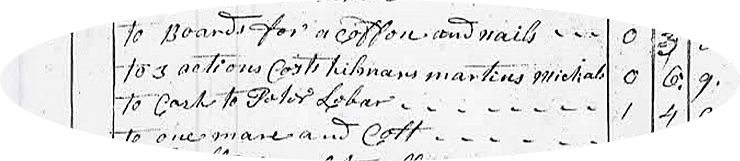 to Boards for a Coffon and nails - - - 0 3 -
to 3 actions Costs kilmans martins Mickals 0 6. 9.
to Cash to Peter Lobar - - - - - - - 1 4
to one mare and Colt - - - - -